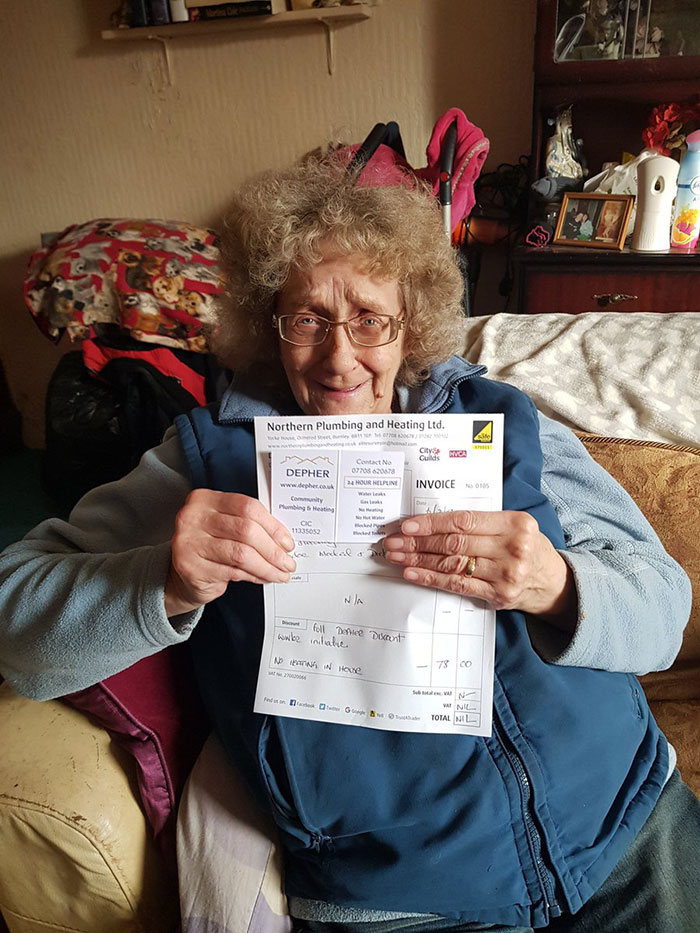 Northern Plumbing and Heating Ltd.
Yorke House, Ormerod Street, Burnley BB11 Tel: 07708 620678 / 01282
www.northernplumbingandheating.co.uk
City & Guilds
HVCA
Gas safe
INVOICE
No 0105
Date
DEPHER
www.depher.co.uk
Community
Plumbing & Heating
CIC
11335052
Contact No
07708 620678
24 HOUR HELPLINE
Water Leaks
Gas Leaks
No Heating
No Hot Water
Blocked Pipes
Blocked Toilets
N/A
Discount Full DEPHER Discount
initiative
No Heating in House — 78 00
VAT No. 270020086
Sub total exc. VAT
VAT NIL
TOTAL NIL
Find us on: Facebook Twitter Google Yell TrustATrader